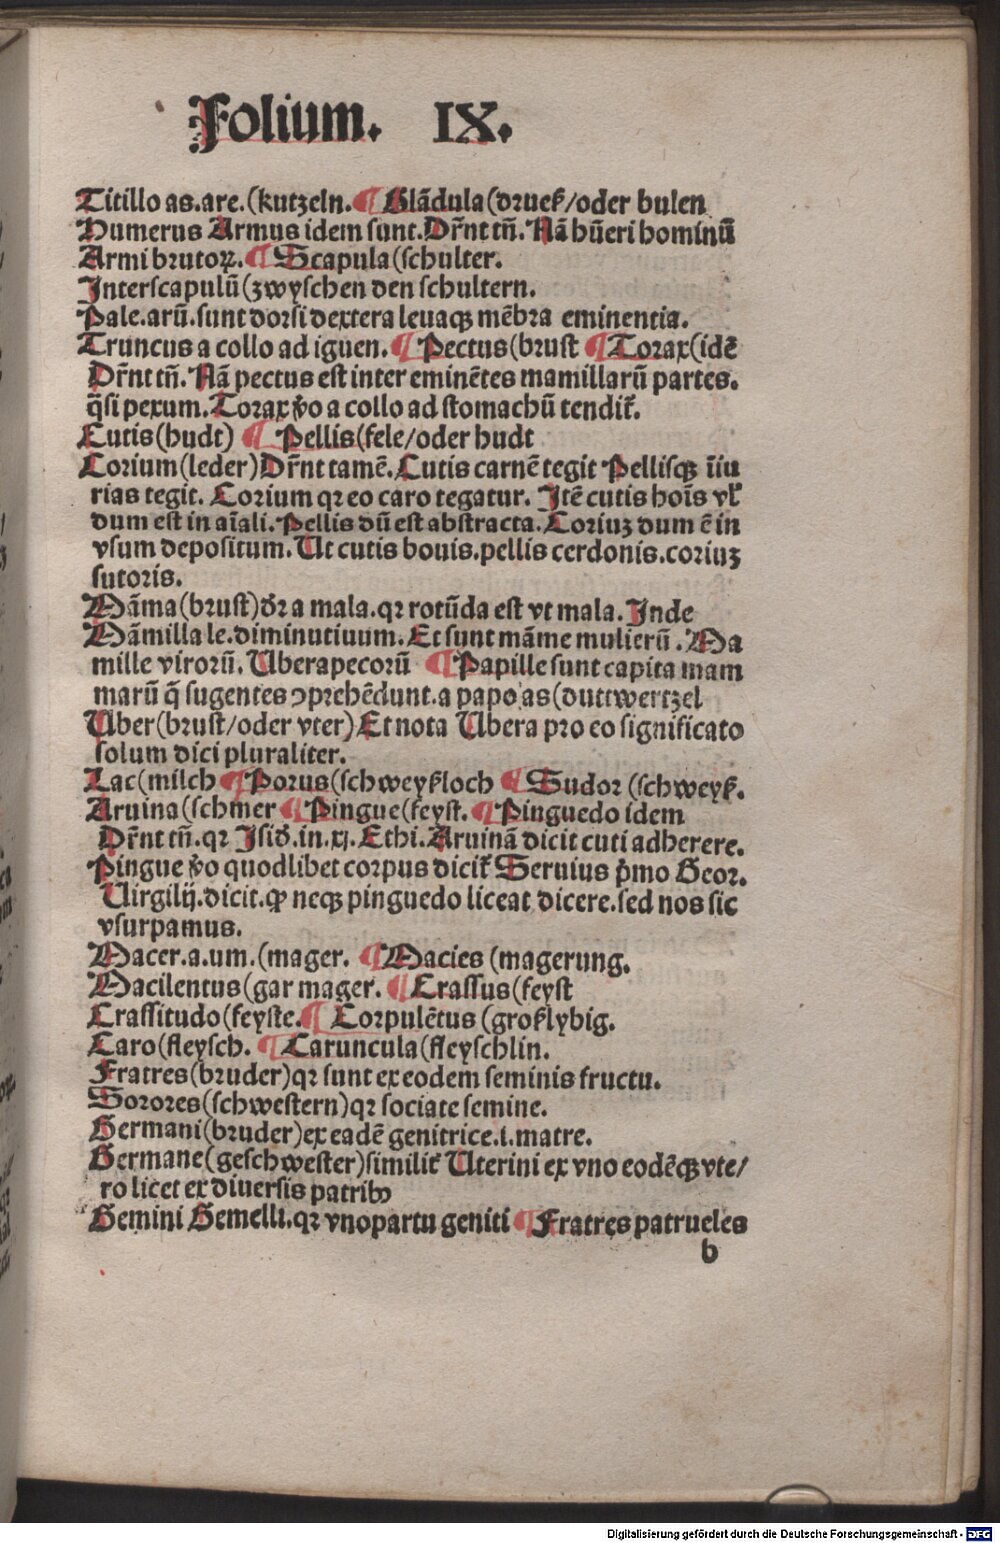 Folium. IX.
Titillo as.are.(kutzeln. ¶ Glādula(druek/oder bulen
Humerus Armus idem sunt.Dr̄nt tn̄. Nā hūeri hominū
Armi brutoꝝ. ¶ Scapula(schulter.
Interscapulū(zwyschen den schultern.
Pale.arū.sunt dorsi dextera leuaqꝫ mēbra eminentia.
Truncus a collo ad iguen. ¶ Pectus(brust ¶ Torax(idē
Dr̄nt tn̄. Nā pectus est inter eminētes mamillarū partes.
q̄si pexum. Torax ꝟo a collo ad stomachū tendit̃.
Cutis(hudt) ¶ Pellis(fele/oder hudt
Corium(leder)Dr̄nt tamē. Cutis carnē tegit Pellisqꝫ īiu
rias tegit. Corium qꝛ eo caro tegatur. Itē cutis hoīs vl̕
dum est in aīali. Pellis dū est abstracta. Coriuꝫ dum ē in
vsum depositum. Ut cutis bouis.pellis cerdonis.coriuꝫ
sutoris.
Māma(brust)dr̄ a mala.qꝛ rotūda est vt mala. Inde
Māmilla le.diminutiuum. Et sunt māme mulierū. Ma
mille virorū. Ubera pecorū ¶ Papille sunt capita mam
marū q̄ sugentes ꝯprehēdunt.a papo as(duttwertzel
Uber(brust/oder vter) Et nota Ubera pro eo significato
solum dici pluraliter.
Lac(milch ¶ Porus(schweyßloch ¶ Sudor (schweyß.
Aruina(schmer ¶ Pingue(feyst. ¶ Pinguedo idem
Dr̄nt tn̄.qꝛ Isid̄.in.xj. Ethi. Aruinā dicit cuti adherere.
Pingue ꝟo quodlibet corpus dicit̃ Seruius p̄mo Geor.
Uirgilij.dicit.ꝙ neqꝫ pinguedo liceat dicere.sed nos sic
vsurpamus.
Macer.a.um.(mager. ¶ Macies (magerung.
Macilentus(gar mager. ¶ Crassus(feyst
Crassitudo(feyste. ¶ Corpulētus (großlybig.
Caro(fleysch. ¶ Caruncula(fleyschlin.
Fratres(bruder)qꝛ sunt ex eodem seminis fructu.
Sorores(schwestern)qꝛ sociate semine.
Germani(bruder)ex eadē genitrice.i.matre.
Germane(geschwester)similit̃ Uterini ex vno eodēqꝫ vte/
ro licet ex diuersis patribꝰ
Gemini Gemelli.qꝛ vno partu geniti ¶ Fratres patrueles
b
Digitalisierung gefördert durch die Deutsche Forschungsgemeinschaft - DFG